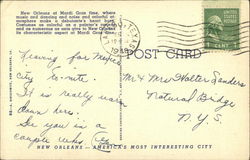 New Orleans at Mardi Gras time, where
music and dancing and noise and colorful at-
mosphere make a debutante's heart light.
Costumes as colorful as a painter's palette
and as numerous as are give to New Orleans
its characteristic aspect at Mardi Gras time.
TEXAS
POST CARD
Leaving for Mexico
city to-nite.
It is really warm
down here.
See you in a
couple wks.
Mr & Mrs Walter Sanders
Natural Bridge
N.Y.S.
NEW ORLEANS — AMERICA'S MOST INTERESTING CITY